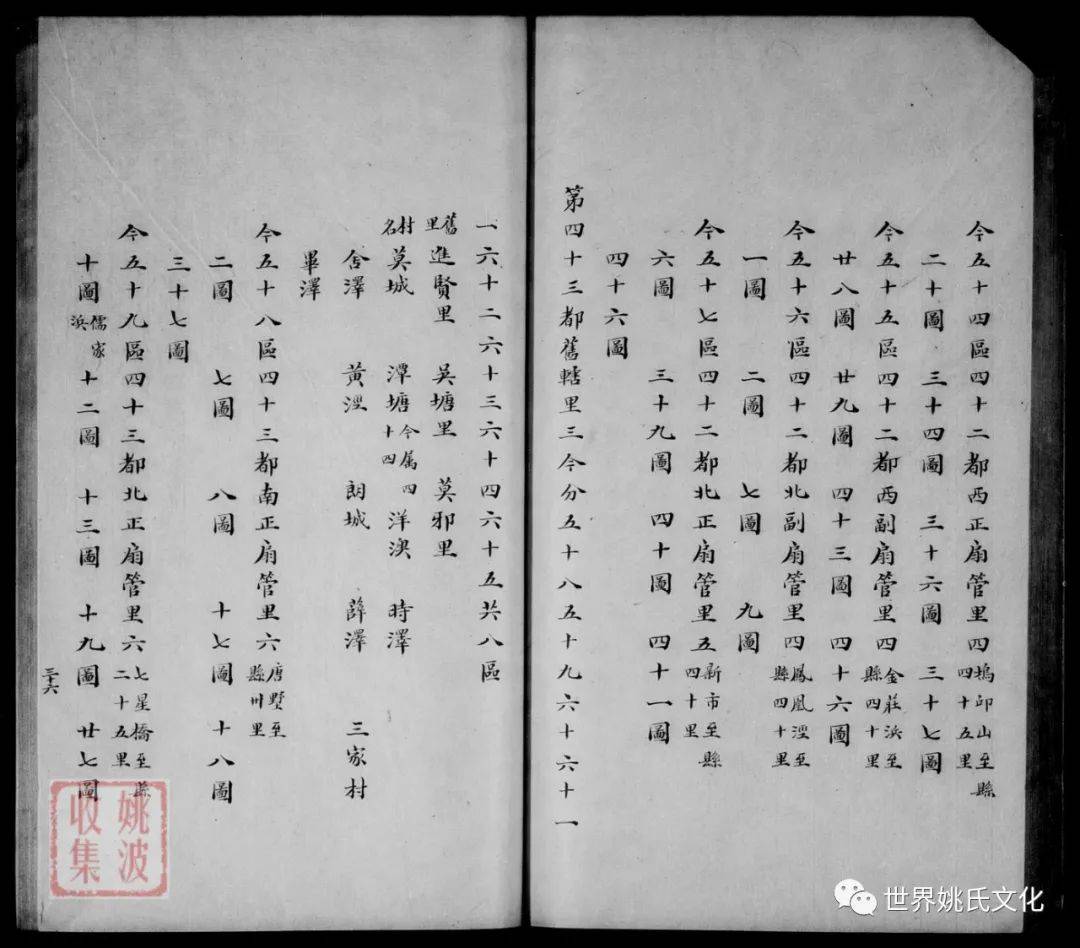 今五十四區四十二都西正扇管里四塢卬山至縣四十五里
二十圖 三十四圖 三十六圖 三十七圖
今五十五區四十二都西副扇管里四金莊浜至縣四十里
廿八圖 廿九圖 四十三圖 四十六圖
今五十六區四十二都北副扇管里四鳳凰涇至縣四十里
一圖 二圖 七圖 九圖
今五十七區四十二都北正扇管里五新市至縣四十里
六圖 三十九圖 四十圖 四十一圖
四十六圖
第四十三都舊轄里三今分五十八五十九六十六十一
一六十二六十三六十四六十五共八區
舊里進賢里 吳塘里 莫邪里
村名莫城 潭塘今属四十四 洋澳 時澤
舍澤 黃涇 朗城 薛澤 三家村
畢澤
今五十八區四十三都南正扇管里六唐墅至縣卅里
二圖 七圖 八圖 十七圖 十八圖
三十七圖
今五十九區四十三都北正扇管里六七星橋至縣二十五里
十圖儒家浜 十二圖 十三圖 十九圖 廿七圖
三十六
姚波收集
世界姚氏文化